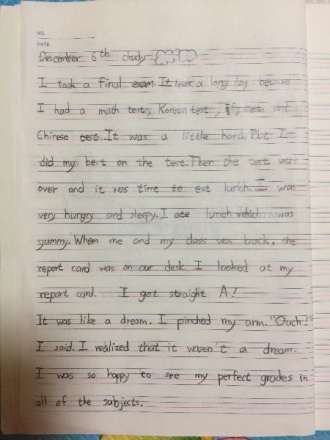 NO.
DATE
December 6th cloudy
I took a final exam. It was a long day because
I had a math test, Korean test, test and
Chinese test. It was a little hard. But I
did my best on the test. Then the test was
over and it was time to eat lunch. I was
very hungry and sleepy. I ate lunch which was
yummy. When me and my class was back, the
report card was on our desk. I looked at my
report card. I got straight A!
It was like a dream. I pinched my arm. "Ouch!"
I said. I realized that it wasen't a dream.
I was so happy to see my perfect grades in
all of the subjects.